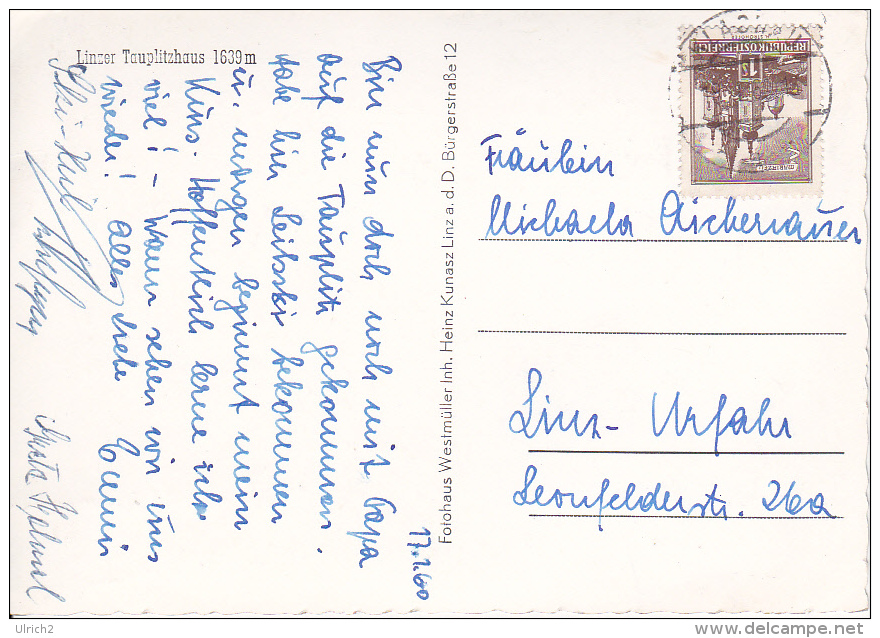 Linzer Tauplitzhaus 1639 m
17.1.60
Bin nun doch noch mit Papa
auf die Tauplitz gekommen.
Habe hier Leihski bekommen
u. morgen beginnt mein
Kurs. Hoffentlich lerne ich
viel! - Wann sehen wir uns
wieder? Alles Liebe
Ski-Heil!
Fotohaus Westmüller Inh. Heinz Kunasz Linz a. d. D. Bürgerstraße 12
REPUBLIK ÖSTERREICH
1 S
MARIAZELL
Fräulein
Michaela Aichernauer
Linz-Urfahr
Leonfelderstr. 26a
Ulrich2
delcampe.net